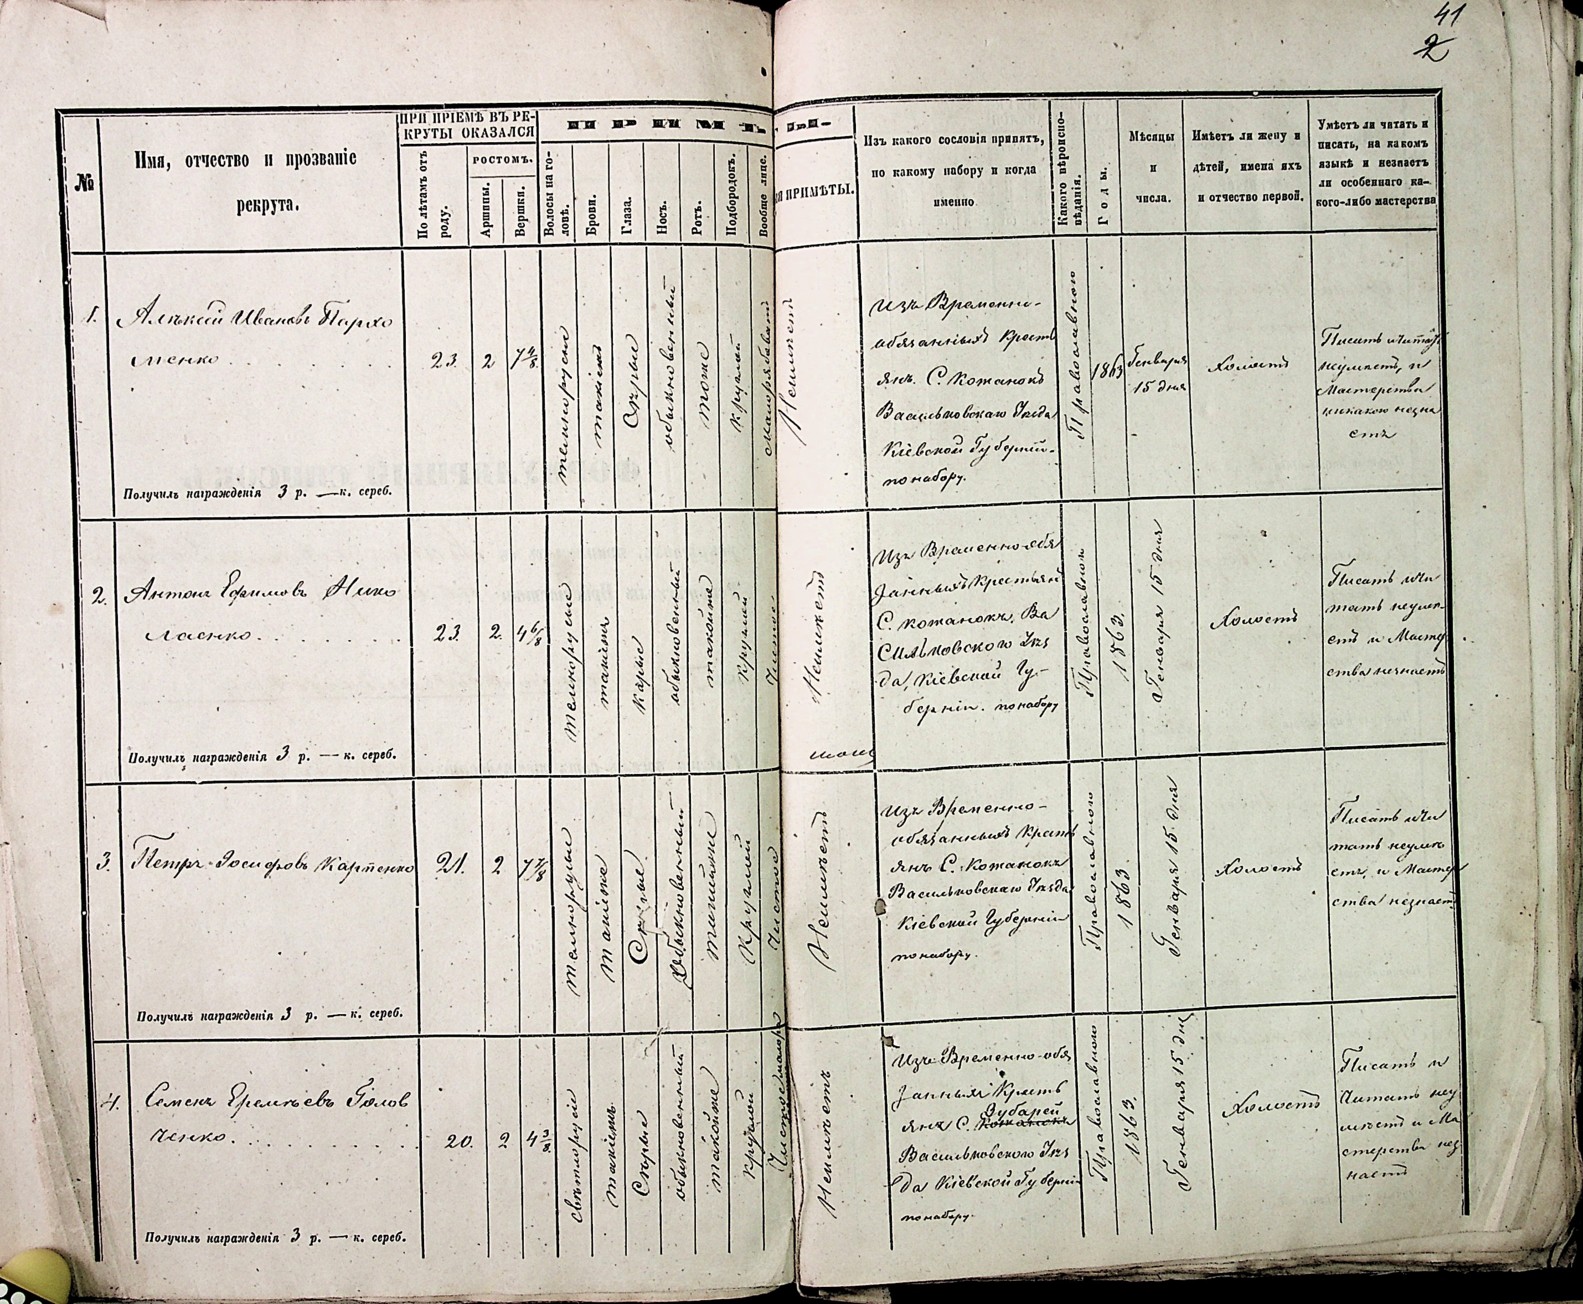 41
2
№
Имя, отчество и прозваніе
рекрута.
ПРИ ПРІЕМѢ ВЪ РЕ-
КРУТЫ ОКАЗАЛСЯ
По лѣтамъ отъ
роду.
РОСТОМЪ.
Аршины.
Вершки.
ПРИМѢТЫ.
Волосы на го-
ловѣ.
Брови.
Глаза.
Носъ.
Ротъ.
Подбородокъ.
Вообще лице.
ПРИМѢТЫ.
Изъ какого сословія принятъ,
по какому набору и когда
именно
Какого вѣроиспо-
вѣданія.
Годы.
Мѣсяцы
и
числа.
Имѣетъ ли жену и
дѣтей, имена ихъ
и отчество первой.
Умѣетъ ли читать и
писать, на какомъ
языкѣ и незнаетъ
ли особеннаго ка-
кого-либо мастерства
1.
Алексѣй Ивановъ Пархо
менко
23.
2
7 4/8
темнорусы
такіежъ
Сѣрые
обыкновенный
тоже
круглый
Неимѣетъ
Изъ Временно-
обязанныхъ Кресть
янъ. С. Кожанокъ
Васильковскаго Уѣзда
Кіевской Губерніи.
по набору.
Православнаго
1863
Генваря
15 дня
Холостъ
Писать и читать
неумѣетъ, и
Мастерства
никакого незна
етъ
Получилъ награжденія 3 р. — к. сереб.
2.
Антонъ Ефимовъ Нико
лаенко.
23.
2.
4 6/8
темнорусые
такіежъ
карые
обыкновенный
такойже
круглый
Чистое
Неимѣетъ
Изъ Временно-обя
занныхъ Крестьянъ
С. Кожанокъ, Ва
сильковского Уѣз
да, Кіевской Гу-
берніи. по набору
Православнаго
1863.
Генваря 15 дня
Холостъ
Писать и чи
тать неумѣ-
етъ и Масте
ства незнаетъ
Получилъ награжденія 3 р. — к. сереб.
3.
Петръ Іосифовъ Карпенко
21.
2
7 7/8
темнорусые
такіеже
Сѣрые.
Обыкновенный
такойже
Круглый
Чистое
Неимѣетъ
Изъ Временно-
обязанныхъ Крестъ
янъ С. Кожанокъ
Васильковскаго Уѣзда
Кіевской Губерніи
по набору.
Православнаго
1863.
Генваря 15. дня
Холостъ
Писать и чи
тать неумѣ
етъ, и Масте
ства незнаетъ
Получилъ награжденія 3 р. — к. сереб.
4.
Семенъ Еремѣевъ Голов
ченко.
20.
2
4 3/8
свѣтлорусы
такіежъ
Сѣрые
обыкновенный
такойже
круглой
Неимѣетъ
Изъ Временно-обя
занныхъ Кресть
янъ С. Кожанокъ Зубарей
Васильковского Уѣз
да Кіевской Губерніи
по набору.
Православнаго
1863.
Генваря 15 дня
Холостъ
Писать и
Читать неу
мѣетъ и Ма
стерства нез
наетъ
Получилъ награжденія 3 р. — к. сереб.